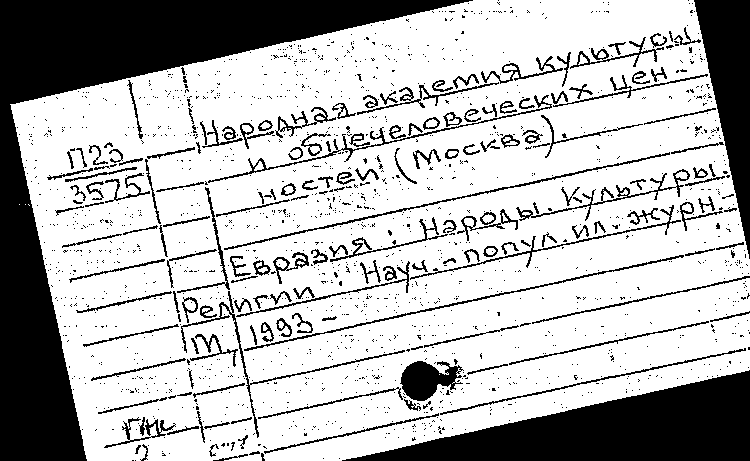 Народная академия культуры
и общечеловеческих цен-
ностей (Москва).
П23
3575
Евразия: Народы. Культуры.
Религии: Науч.-попул. ил. журн.-
М, 1993-